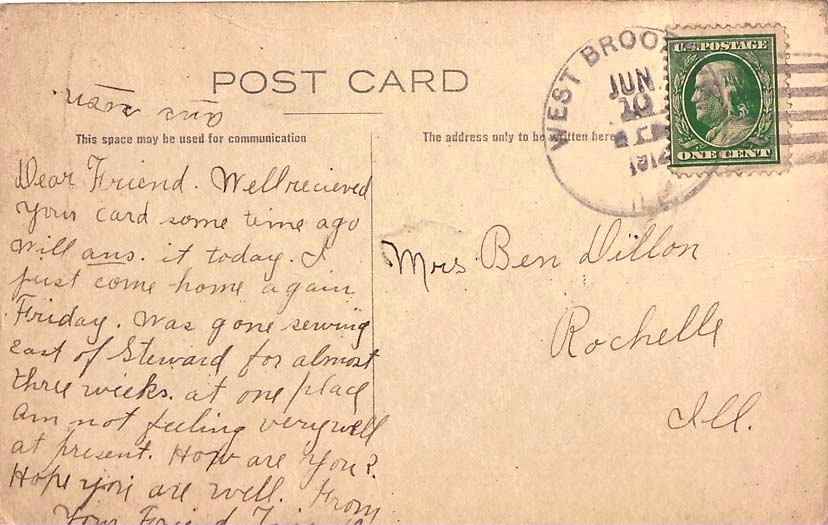 POST CARD
This space may be used for communication
The address only to be written here
WEST BROO
JUN
10
1912
ILL
U.S. POSTAGE
ONE CENT
Dear Friend. Well recieved
your card some time ago
will ans. it today. I
just come home again
Friday. Was gone sewing
east of Steward for almost
three weeks. at one place
am not feeling very well
at present. How are you?
Hope you are well. From
Your Friend
ans soon
Mrs Ben Dillon
Rochelle
Ill.